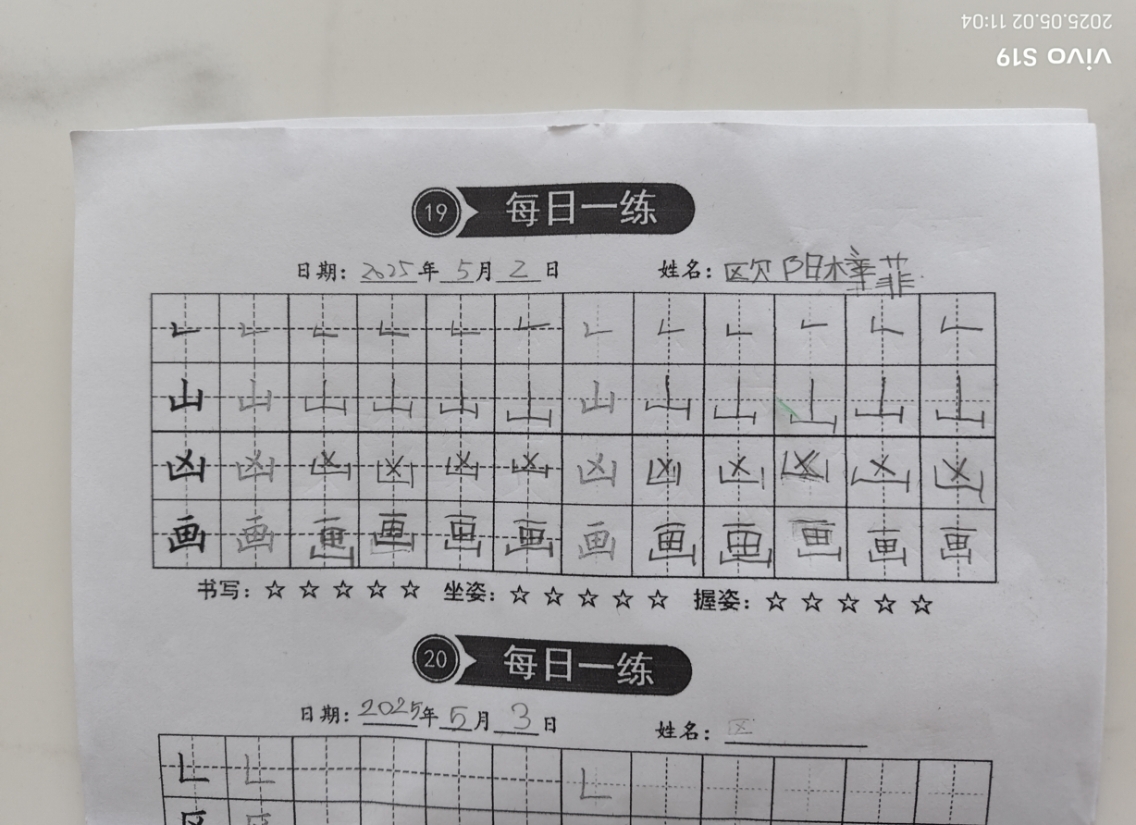 2025.05.02 11:04
vivo S19
19 每日一练
日期: 2025年 5月 2日 姓名: 欧阳梓菲
𠃊 𠃊 𠃊 𠃊 𠃊 𠃊 𠃊 𠃊 𠃊 𠃊 𠃊 𠃊
山 山 山 山 山 山 山 山 山 山 山 山
凶 凶 凶 凶 凶 凶 凶 凶 凶 凶 凶 凶
画 画 画 画 画 画 画 画 画 画 画 画
书写: ☆ ☆ ☆ ☆ ☆ 坐姿: ☆ ☆ ☆ ☆ ☆ 握姿: ☆ ☆ ☆ ☆ ☆
20 每日一练
日期: 2025年 5月 3日 姓名: 区
𠃊 𠃊 𠃊
区 区